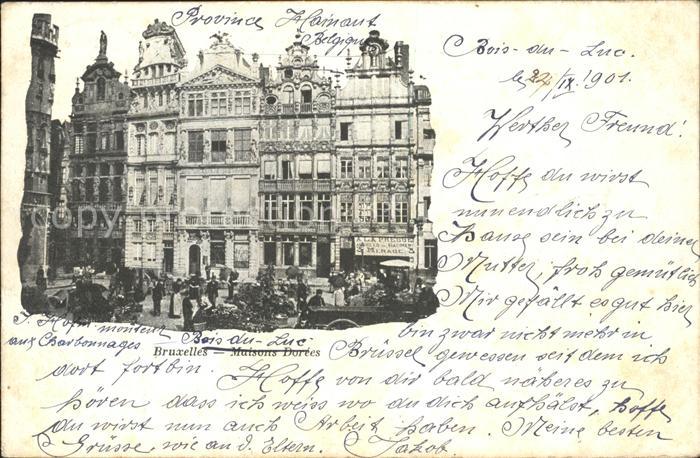 Province Hainant
Belgique
Bois-du-Luc.
le 22/IX. 1901.
Werther Freund!
Hoffe du wirst
nun endlich zu
Hause sein bei deiner
Mutter, froh gemütlich
Mir gefällt es gut hier
bin zwar nicht mehr in
Brüssel gewesen seit dem ich
dort fort bin. Hoffe von dir bald näheres zu
hören dass ich weiss wo du dich aufhälst, hoffe
du wirst nun auch Arbeit haben. Meine besten
Grüsse, wie an d. Eltern. Jakob
J. Hofer monteur
aux Charbonnages Bois-du-Luc.
Bruxelles — Maisons Dorées
A LA PRESSE
MÉNAGE